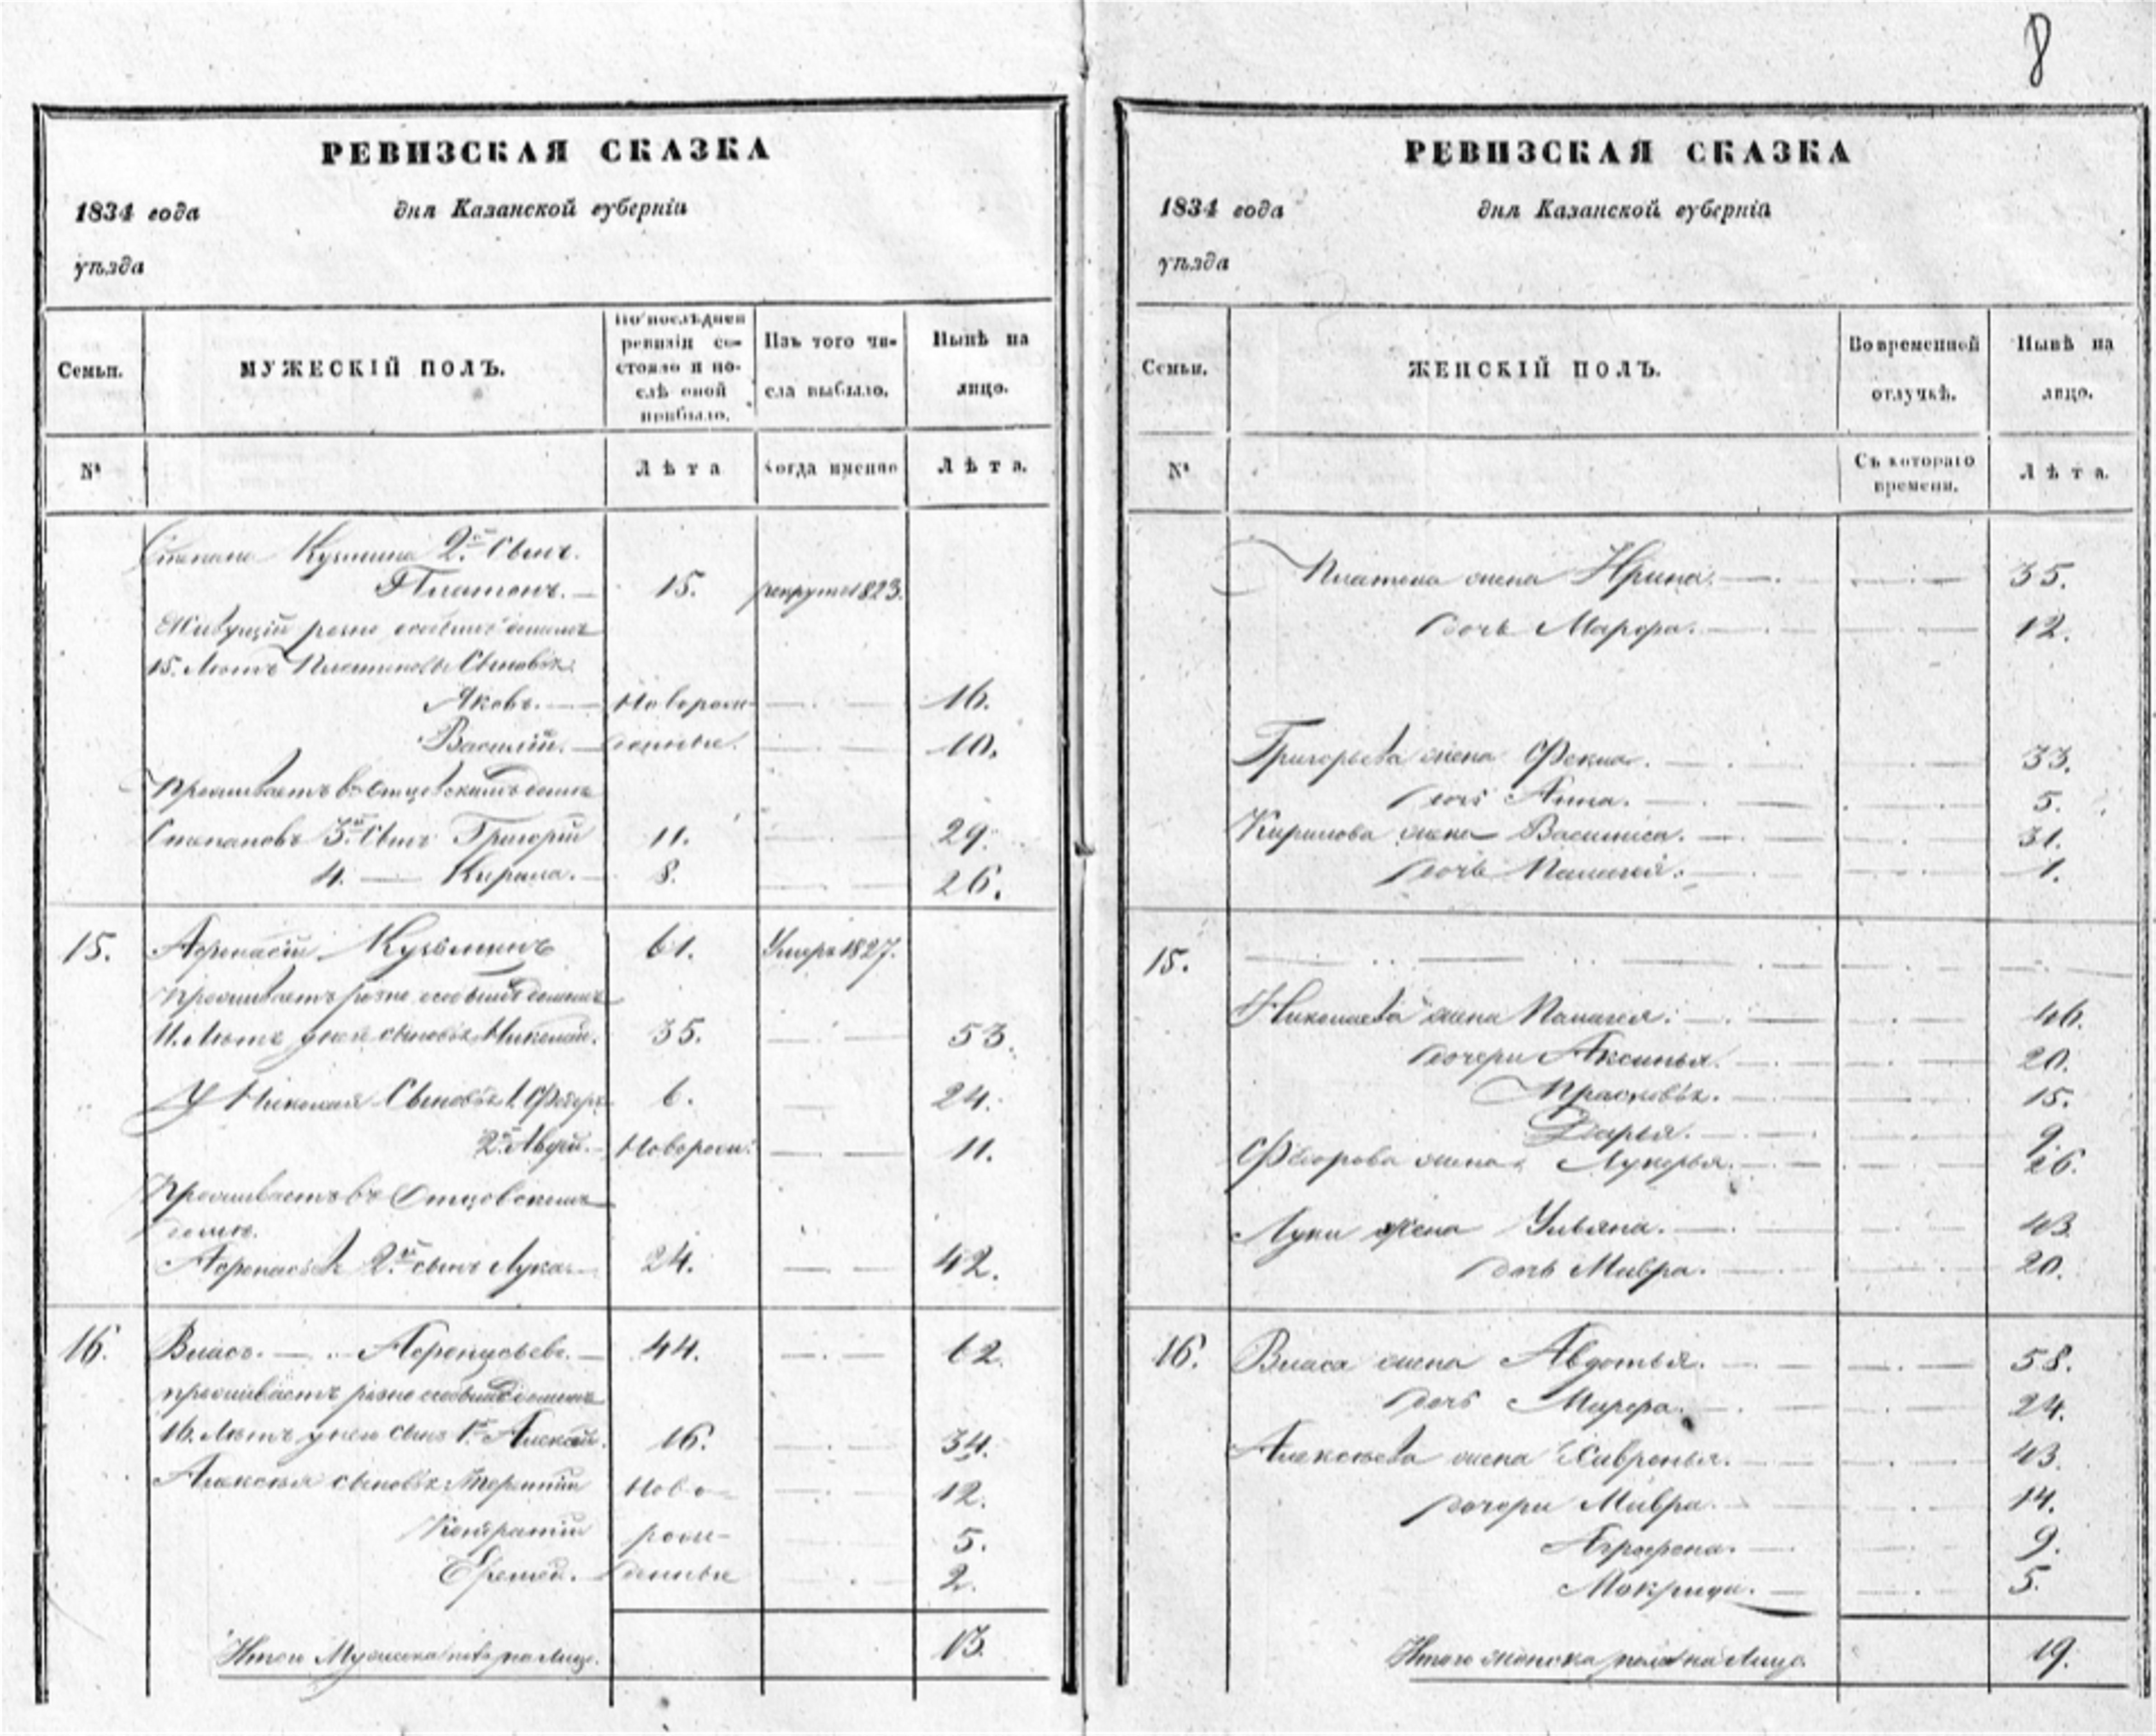 8
РЕВИЗСКАЯ СКАЗКА
1834 года дня Казанской губерніи
уѣзда
Семьи. МУЖЕСКІЙ ПОЛЪ. По послѣдней ревизіи состояло и послѣ оной прибыло. Изъ того числа выбыло. Нынѣ на лицо.
№ Лѣта Когда именно Лѣта.
Степана Кузмина 2й Сынъ.
Платонъ. 15. рекрутъ 1823.
Живущій розно особымъ домомъ
15. Лѣтъ Платоновы Сыновья
Яковъ. Новорож- 16.
Василій. денные. 10.
Проживаетъ въ Отцовскомъ домѣ
Степановъ 3й Сынъ Григорій 11. 29.
4. Кирила. 8. 26.
15. Афонасій Кузьминъ 61. Умеръ 1827.
Проживаетъ розно особымъ домомъ
11. Лѣтъ у него сыновья Николай. 35. 53.
У Николая Сыновья 1. Федоръ 6. 24.
2й Новорож. 11.
Проживаетъ въ Отцовскомъ
домѣ.
Афонасьевъ 2й сынъ Лука 24. 42.
16. Власъ. Афонасьевъ. 44. 62.
проживаетъ розно особымъ домомъ
16. Лѣтъ у него сынъ 1й Алексѣй. 16. 34.
Алексѣя сыновья Терентій Ново- 12.
Кондратій рож- 5.
Еремей. денные 2.
Итого Мужеска пола на Лицо. 13.
РЕВИЗСКАЯ СКАЗКА
1834 года дня Казанской губерніи
уѣзда
Семьи. ЖЕНСКІЙ ПОЛЪ. Во временной отлучкѣ. Нынѣ на лицо.
№ Съ котораго времени. Лѣта.
Платона жена Ирина. 35.
дочь Марфа. 12.
Григорьева жена Фекла. 33.
дочь Анна. 5.
Кирилова жена Василиса. 31.
дочь Палагея. 1.
15.
Николаева жена Палагея. 46.
дочери Аксинья. 20.
Прасковья. 15.
Дарья. 9.
Федорова жена Лукерья. 26.
Луки жена Ульяна. 43.
дочь Мавра. 20.
16. Власа жена Авдотья. 58.
дочь Марфа. 24.
Алексѣева жена Хавронья. 43.
дочери Мавра. 14.
Аграфена. 9.
Мокрида. 5.
Итого женска пола на Лицо. 19.